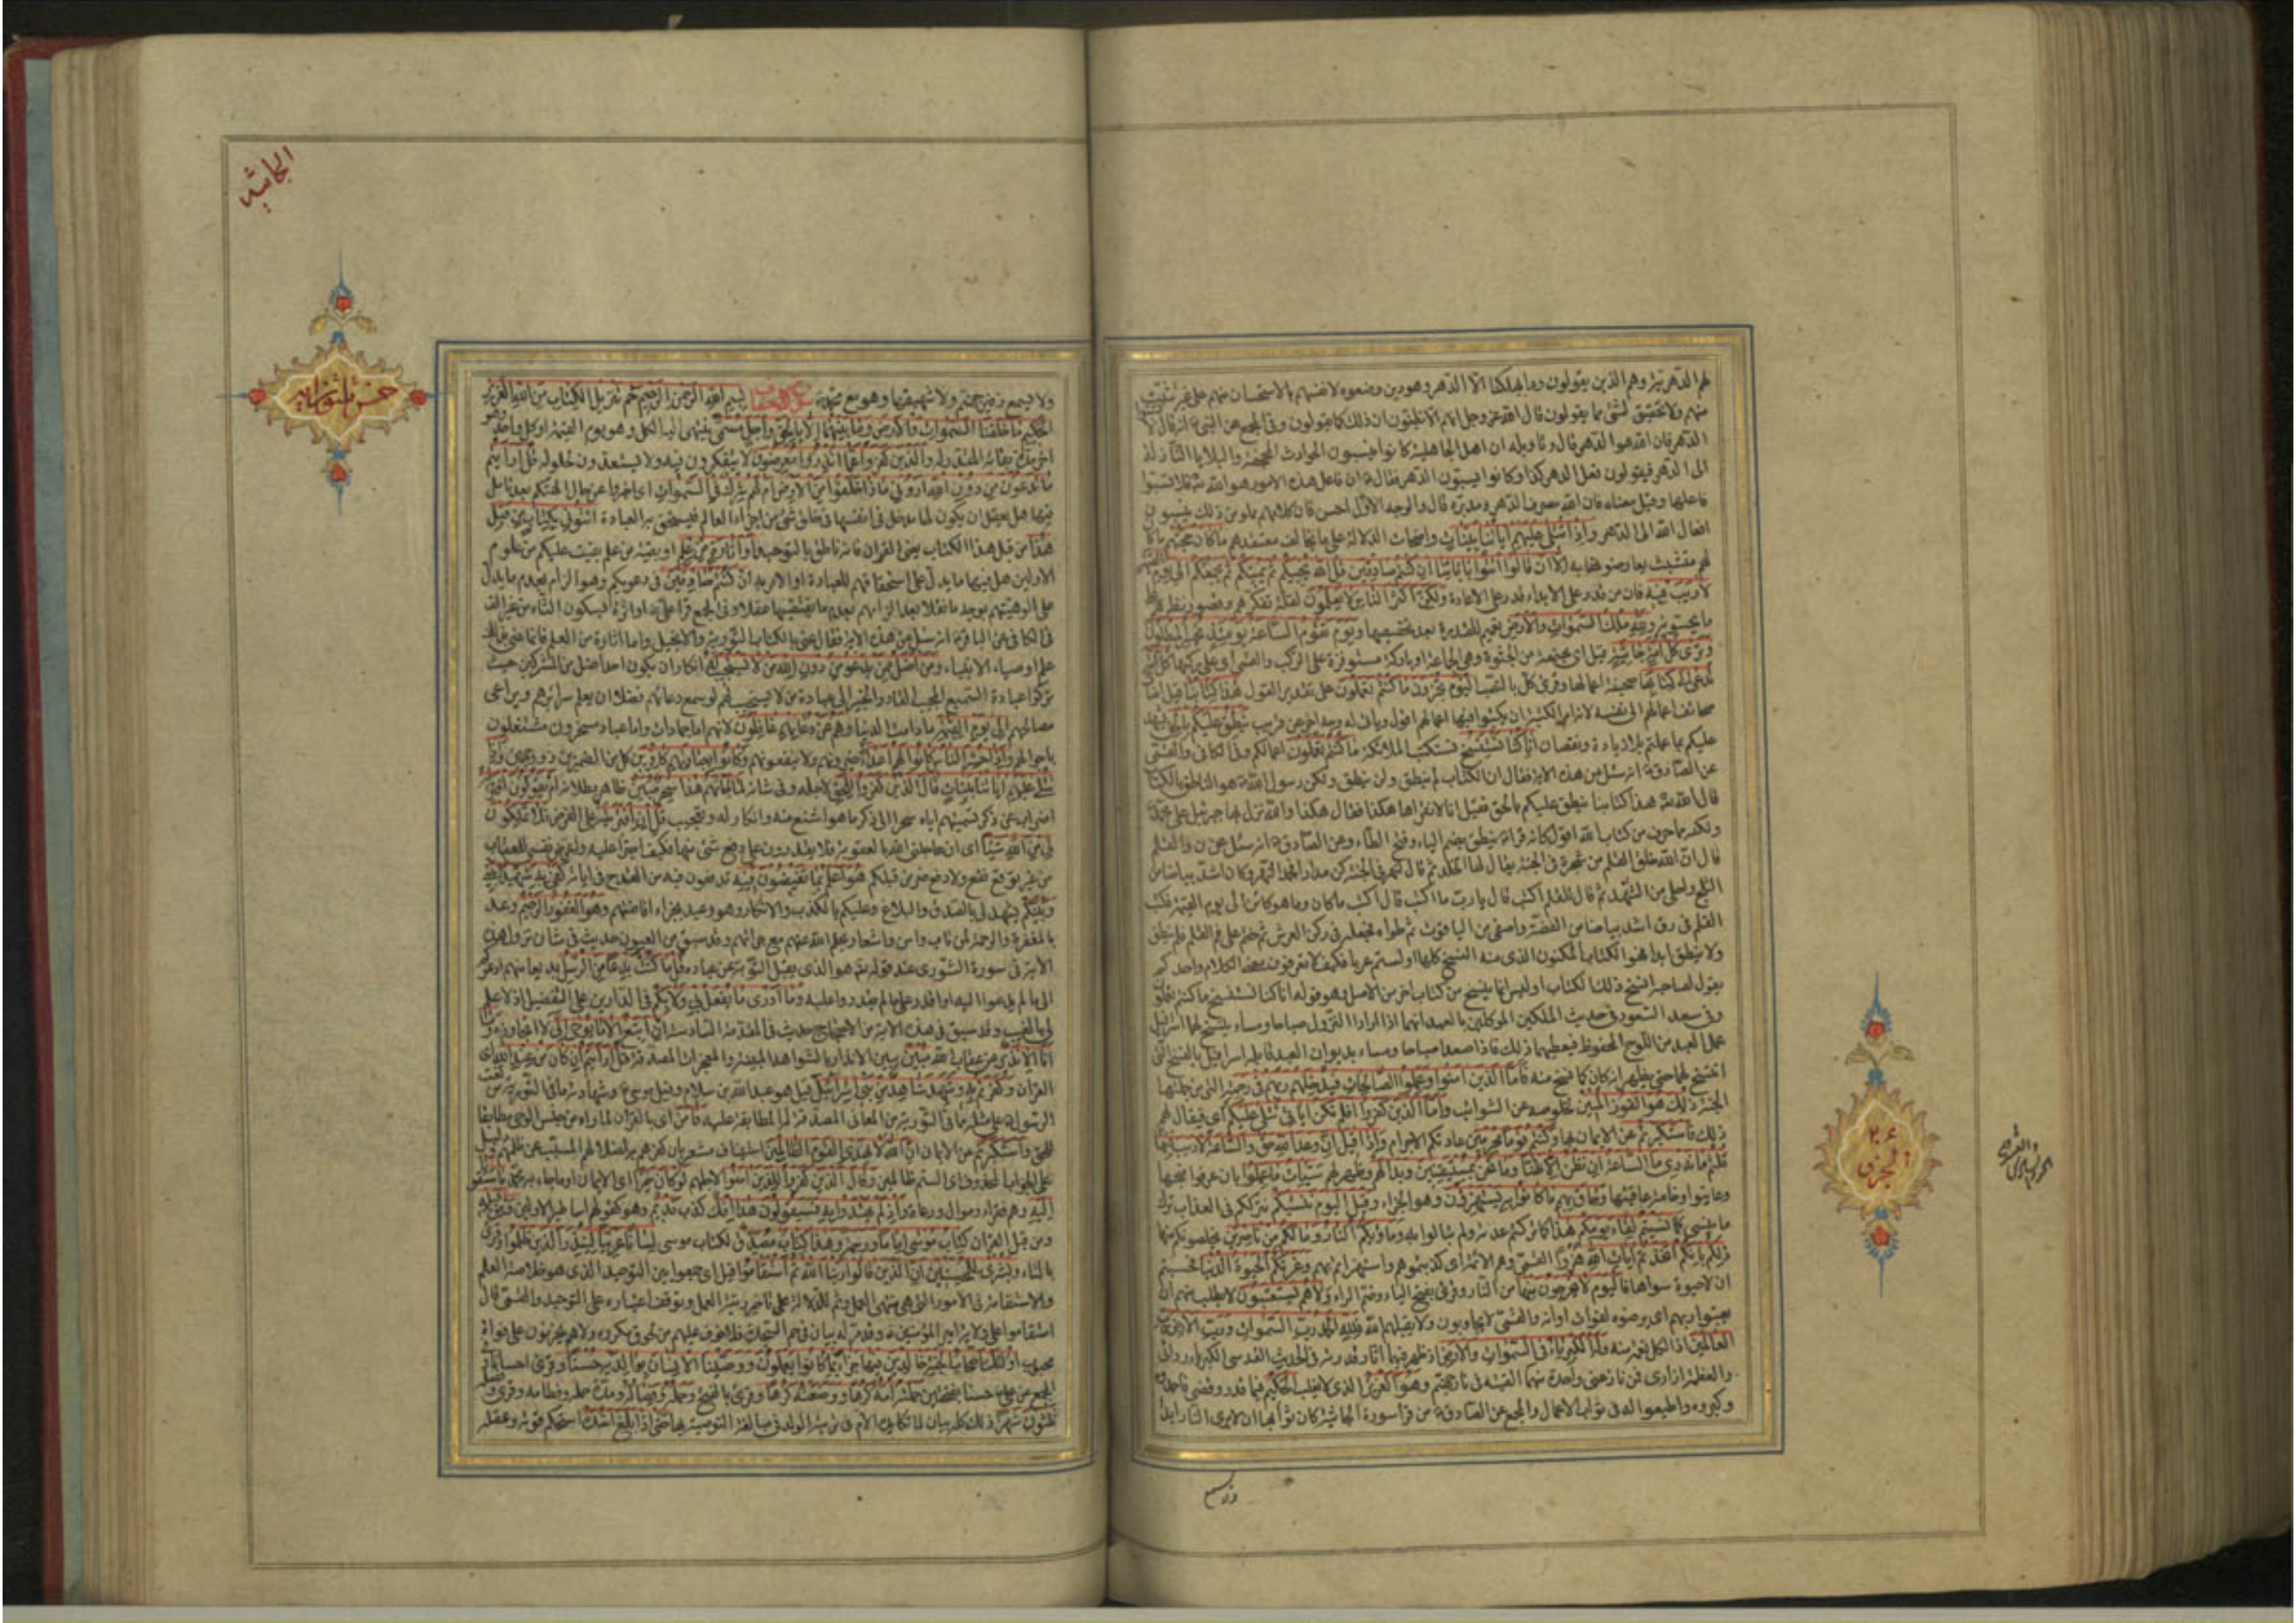 لهم الدهرية وهم الذين يقولون وما يهلكنا الا الدهر وهو دين وضعوه لانفسهم بالاستحسان منهم على غير تثبت
منهم ولا تحقيق لشئ مما يقولون قال الله عز وجل ان هم الا يظنون ان ذلك كما يقولون وفي المجمع عن النبي انه قال لا
الدهر فان الله هو الدهر قال وتاويله ان اهل الجاهلية كانوا ينسبون الحوادث المجحفة والبلايا النازلة
الى الدهر فيقولون فعل الدهر كذا وكانوا يسبون الدهر فقال ان فاعل هذه الامور هو الله فلا تسبوا
فاعلها وقيل معناه فان الله مصرف الدهر ومدبره قال والوجه الاول احسن فان كلامهم مملو من ذلك ينسبون
افعال الله الى الدهر واذا تتلى عليهم اياتنا بينات واضحات الدلالة على ما يخالف معتقدهم ما كان حجتهم ما كان
لهم متشبث يعارضونها به الا ان قالوا ائتوا بابائنا ان كنتم صادقين قل الله يحييكم ثم يميتكم ثم يجمعكم الى يوم
لا ريب فيه فان من قدر على الابداء قدر على الاعادة ولكن اكثر الناس لا يعلمون لقلة تفكرهم وقصور نظرهم
ما يحسونه ولله ملك السموات والارض تعميم للقدرة بعد تخصيصها ويوم تقوم الساعة يومئذ يخسر المبطلون
وترى كل امة جاثية قيل اي مجتمعة من الجثوة وهي الجماعة او باركة مستوفزة على الركب والقمي اي على ركبها كل امة
تدعى الى كتابها صحيفة اعمالها وقرئ كل بالنصب اليوم تجزون ما كنتم تعملون على تقدير القول هذا كتابنا قيل اضاف
صحائف اعمالهم الى نفسه لانه امر الكتبة ان يكتبوا فيها اعمالهم اقول وياتي له وجه اخر عن قريب ينطق عليكم بالحق يشهد
عليكم بما عملتم بلا زيادة ونقصان انا كنا نستنسخ نستكتب الملائكة ما كنتم تعملون اعمالكم وفي الكافي والقمي
عن الصادق انه سئل عن هذه الاية فقال ان الكتاب لم ينطق ولن ينطق ولكن رسول الله هو الناطق بالكتاب
قال الله هذا كتابنا ينطق عليكم بالحق فقيل انا لا نقراها هكذا فقال هكذا والله نزل بها جبرئيل على محمد
ولكنه مما حرف من كتاب الله اقول كانه قراه ينطق بضم الياء وفتح الطاء وعن الصادق انه سئل عن ن والقلم
قال ان الله خلق القلم من شجرة في الجنة يقال لها الخلد ثم قال لنهر في الجنة كن مدادا فجمد النهر وكان اشد بياضا من
الثلج واحلى من الشهد ثم قال للقلم اكتب قال يا رب ما اكتب قال اكتب ما كان وما هو كائن الى يوم القيمة فكتب
القلم في رق اشد بياضا من الفضة واصفى من الياقوت ثم طواه فجعله في ركن العرش ثم ختم على فم القلم فلم ينطق
ولا ينطق ابدا فهو الكتاب المكنون الذي منه النسخ كلها اولستم عربا فكيف لا تعرفون معنى الكلام واحدكم
يقول لصاحبه انسخ ذلك الكتاب اوليس انما ينسخ من كتاب اخر من الاصل وهو قوله انا كنا نستنسخ ما كنتم تعملون
وفي سعد السعود في حديث الملكين الموكلين بالعبد انهما اذا ارادا النزول صباحا ومساء ينسخ لهما اسرافيل
عمل العبد من اللوح المحفوظ فيعطيهما ذلك فاذا صعدا صباحا ومساء بديوان العبد قابله اسرافيل بالنسخ التي
انتسخ لهما حتى يظهر انه كان كما نسخ منه فاما الذين امنوا وعملوا الصالحات فيدخلهم ربهم في رحمته التي من جملتها
الجنة ذلك هو الفوز المبين لخلوصه عن الشوائب واما الذين كفروا افلم تكن اياتي تتلى عليكم اي فيقال لهم
ذلك فاستكبرتم عن الايمان بها وكنتم قوما مجرمين عادتكم الاجرام واذا قيل ان وعد الله حق والساعة لا ريب فيها
قلتم ما ندري ما الساعة ان نظن الا ظنا وما نحن بمستيقنين وبدا لهم وظهر لهم سيئات ما عملوا بان عرفوا قبحها
وعاينوا وخامة عاقبتها وحاق بهم ما كانوا به يستهزؤن وهو الجزاء وقيل اليوم ننسيكم نترككم في العذاب ترك
ما ينسى كما نسيتم لقاء يومكم هذا كما تركتم عدته ولم تبالوا به وماويكم النار وما لكم من ناصرين يخلصونكم منها
ذلكم بانكم اتخذتم ايات الله هزوا القمي وهم الائمة اي كذبتموهم واستهزأتم بهم وغرتكم الحيوة الدنيا فحسبتم
ان لا حيوة سواها فاليوم لا يخرجون منها من النار وقرئ بفتح الياء وضم الراء ولا هم يستعتبون لا يطلب منهم ان
يعتبوا ربهم اي يرضوه لفوات اوانه والقمي لا يجاوبون ولا يقبلهم الله فلله الحمد رب السموات ورب الارض رب
العالمين اذ الكل نعمة منه وله الكبرياء في السموات والارض اذ ظهر فيها اثار قدرته في الحديث القدسي الكبرياء ردائي
والعظمة ازاري فمن نازعني واحدة منهما القيته في نار جهنم وهو العزيز الذي لا يغلب الحكيم فيما قدر وقضى فاحمدوه
وكبروه واطيعوا له في ثواب الاعمال والمجمع عن الصادق من قرا سورة الجاثية كان ثوابها ان لا يرى النار ابدا
۲۶
الجزء
ولا يسمع
الجاثيه
ولا يسمع زفير جهنم ولا شهيقها وهو مع محمد سورة الاحقاف بسم الله الرحمن الرحيم حم تنزيل الكتاب من الله العزيز
الحكيم ما خلقنا السموات والارض وما بينهما الا بالحق واجل مسمى ينتهي اليه الكل وهو يوم القيمة او كل واحد وهو
اخر مدة بقائه المقدر له والذين كفروا عما انذروا معرضون لا يتفكرون فيه ولا يستعدون لحلوله قل ارايتم
ما تدعون من دون الله اروني ماذا خلقوا من الارض ام لهم شرك في السموات اي اخبروني عن حال الهتكم بعد تامل
فيها هل يعقل ان يكون لها مدخل في انفسها في خلق شئ من اجزاء العالم فيستحق به العبادة ائتوني بكتاب من قبل
هذا من قبل هذا الكتاب يعني القران فانه ناطق بالتوحيد او اثارة من علم او بقية من علم بقيت عليكم من علوم
الاولين هل فيها ما يدل على استحقاقهم للعبادة او الامر به ان كنتم صادقين في دعويكم وهو الزام بعدم ما يدل
على الوهيتهم بوجه ما نقلا بعد الزامهم بعدم ما يقتضيها عقلا وفي المجمع قرا علي او اثرة بسكون الثاء من غير الف
في الكافي عن الباقر انه سئل عن هذه الاية فقال عنى بالكتاب التورية والانجيل واما اثارة من العلم فانما عنى بذلك
علم اوصياء الانبياء ومن اضل ممن يدعو من دون الله من لا يستجيب له انكار ان يكون احد اضل من المشركين حيث
تركوا عبادة السميع المجيب القادر الخبير الى عبادة من لا يستجيب لهم لو سمع دعائهم فضلا ان يعلم سرائرهم ويراعي
مصالحهم الى يوم القيمة ما دامت الدنيا وهم عن دعائهم غافلون لانهم اما جمادات واما عباد مسخرون مشتغلون
باحوالهم واذا حشر الناس كانوا لهم اعداء يضرونهم ولا ينفعونهم وكانوا بعبادتهم كافرين كل من الضميرين ذو وجهين واذا
تتلى عليهم اياتنا بينات قال الذين كفروا للحق لاجله وفي شانه لما جاءهم هذا سحر مبين ظاهر بطلانه ام يقولون افتريه
اضراب عن ذكر تسميتهم اياه سحرا الى ذكر ما هو اشنع منه وانكار له وتعجيب قل ان افتريته على الفرض فلا تملكون
لي من الله شيئا اي ان عاجلني الله بالعقوبة فلا تقدرون على دفع شئ منها فكيف اجترئ عليه واعرض نفسي للعقاب
من غير توقع نفع ولا دفع ضر من قبلكم هو اعلم بما تفيضون فيه تدفعون فيه من القدح في اياته كفى به شهيدا بيني
وبينكم يشهد لي بالصدق والبلاغ وعليكم بالكذب والانكار وهو وعيد بجزاء افاضتهم وهو الغفور الرحيم وعد
بالمغفرة والرحمة لمن تاب وامن واشعار بحلم الله عنهم مع جرأتهم وقد سبق من العيون حديث في شان نزول هذه
الاية في سورة الشورى عند قوله هو الذي يقبل التوبة عن عباده قل ما كنت بدعا من الرسل بديعا منهم ادعوكم
الى ما لم يدعوا اليه او اقدر على ما لم يقدروا عليه وما ادري ما يفعل بي ولا بكم في الدارين على التفصيل اذ لا علم
لي بالغيب وقد سبق في هذه الاية من الاحتجاج حديث في المقدمة السادسة ان اتبع الا ما يوحى الي لا اتجاوزه وما
انا الا نذير من عقاب الله مبين يبين الانذار بالشواهد المبينة والمعجزات المصدقة قل ارايتم ان كان من عند الله اي
القران وكفرتم به وشهد شاهد من بني اسرائيل قيل هو عبد الله بن سلام وقيل موسى وشهادته ما في التورية من نعت
الرسول على مثله مما في التورية من المعاني المصدقة له المطابقة عليه فامن اي بالقران لما راه من جنس الوحي مطابقا
للحق واستكبرتم عن الايمان ان الله لا يهدي القوم الظالمين استيناف مشعر بان كفرهم به لضلالهم المسبب عن ظلمهم ودليل
على الجواب المحذوف اي الستم ظالمين وقال الذين كفروا للذين امنوا لاجلهم لو كان خيرا اي الايمان او ما جاء به محمد ما سبقونا
اليه وهم فقراء وموال ورعاة واذ لم يهتدوا به فسيقولون هذا افك قديم كذب قديم وهو كقولهم اساطير الاولين ومن قبله
ومن قبل القران كتاب موسى اماما ورحمة وهذا كتاب مصدق لكتاب موسى لسانا عربيا لينذر الذين ظلموا وقرئ
بالتاء وبشرى للمحسنين ان الذين قالوا ربنا الله ثم استقاموا قيل اي جمعوا بين التوحيد الذي هو خلاصة العلم
والاستقامة في الامور التي هي منتهى العمل وثم للدلالة على تاخر رتبة العمل وتوقف اعتباره على التوحيد والقمي قال
استقاموا على ولاية امير المؤمنين وقد مر له بيان في حم السجدة فلا خوف عليهم من لحوق مكروه ولا هم يحزنون على فوات
محبوب اولئك اصحاب الجنة خالدين فيها جزاء بما كانوا يعملون ووصينا الانسان بوالديه حسنا وقرئ احسانا وفي
المجمع عن علي حسنا بفتحتين حملته امه كرها ووضعته كرها وقرئ بالفتح وحمله وفصاله ومدة حمله وفطامه وقرئ وفصله
ثلثون شهرا ذلك كله بيان لما تكابده الام في تربية الولد في مبالغة التوصية بها حتى اذا بلغ اشده استحكم قوته وعقله